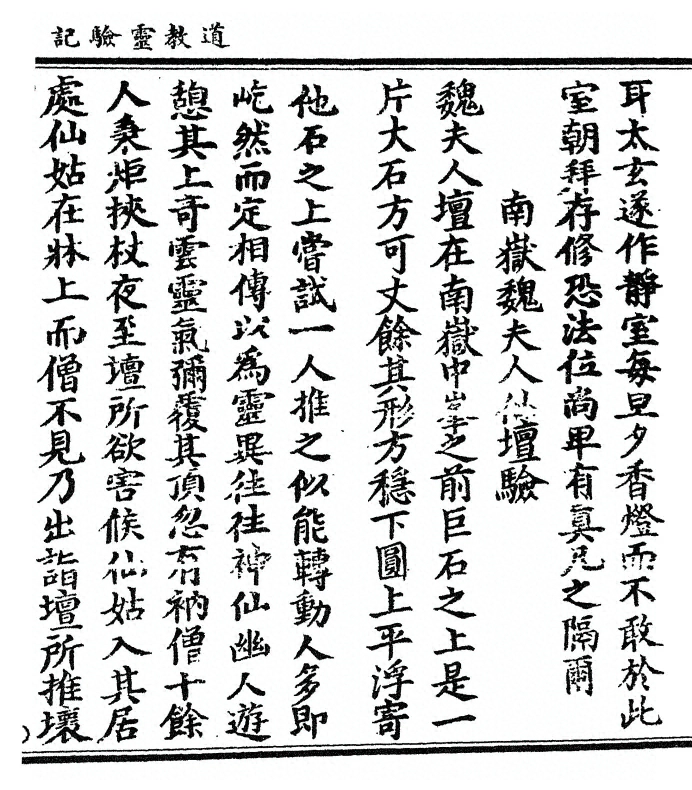 道教靈驗記
耳太玄遂作靜室每旦夕香燈而不敢於此
室朝拜存修恐法位尚卑有真凡之隔爾
南嶽魏夫人仙壇驗
魏夫人壇在南嶽中峯之前巨石之上是一
片大石方可丈餘其形方穩下圓上平浮寄
他石之上嘗試一人推之似能轉動人多即
屹然而定相傳以為靈異往往神仙幽人遊
憩其上奇雲靈氣彌覆其頂忽有衲僧十餘
人秉炬挾杖夜至壇所欲害緱仙姑入其居
處仙姑在牀上而僧不見乃出詣壇所推壞